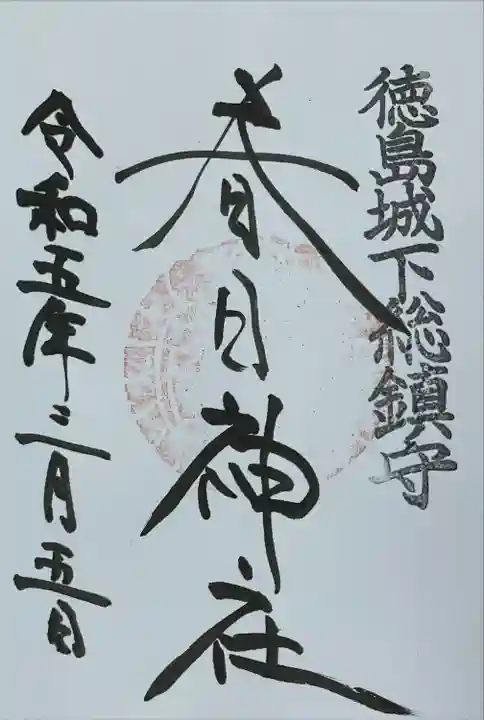 徳島城下総鎮守
春日神社
令和五年二月五日